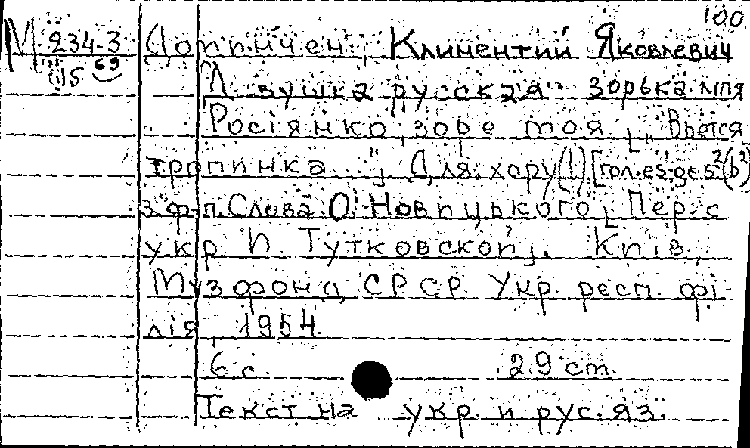 100
М 234-3 Доминчен, Климентий Яковлевич
69
Девушка русская зорька моя
Росіянко, зоре моя, „Вьется
тропинка..."; Для хору (!)
з ф-п. Слова О. Новицького; Пер. с
укр. П. Тутковской. Київ,
Музфонд СРСР. Укр. респ. фі-
лія, 1954.
6 с. 29 cm.
Текст на укр. и рус. яз.